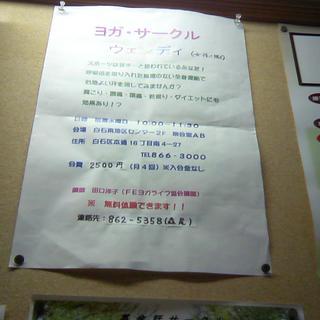 ヨガ・サークル
ウェンディ
スポーツは苦手…と思われているあなた！
呼吸法を取り入れた無理のない全身運動で
心地よい汗を流してみませんか？
肩こり・腰痛・頭痛・肥満・ダイエットにも
効果あり！？
日時 毎週水曜日 10:00～11:30
会場 白石東地区センター2F 集会室AB
住所 白石区本通16丁目南4-27
TEL866-3000
会費 2500円(月4回)※入会金なし
講師 田口洋子(FEヨガライフ協会講師)
※ 無料体験できます！！
連絡先:862-5358(森尾)